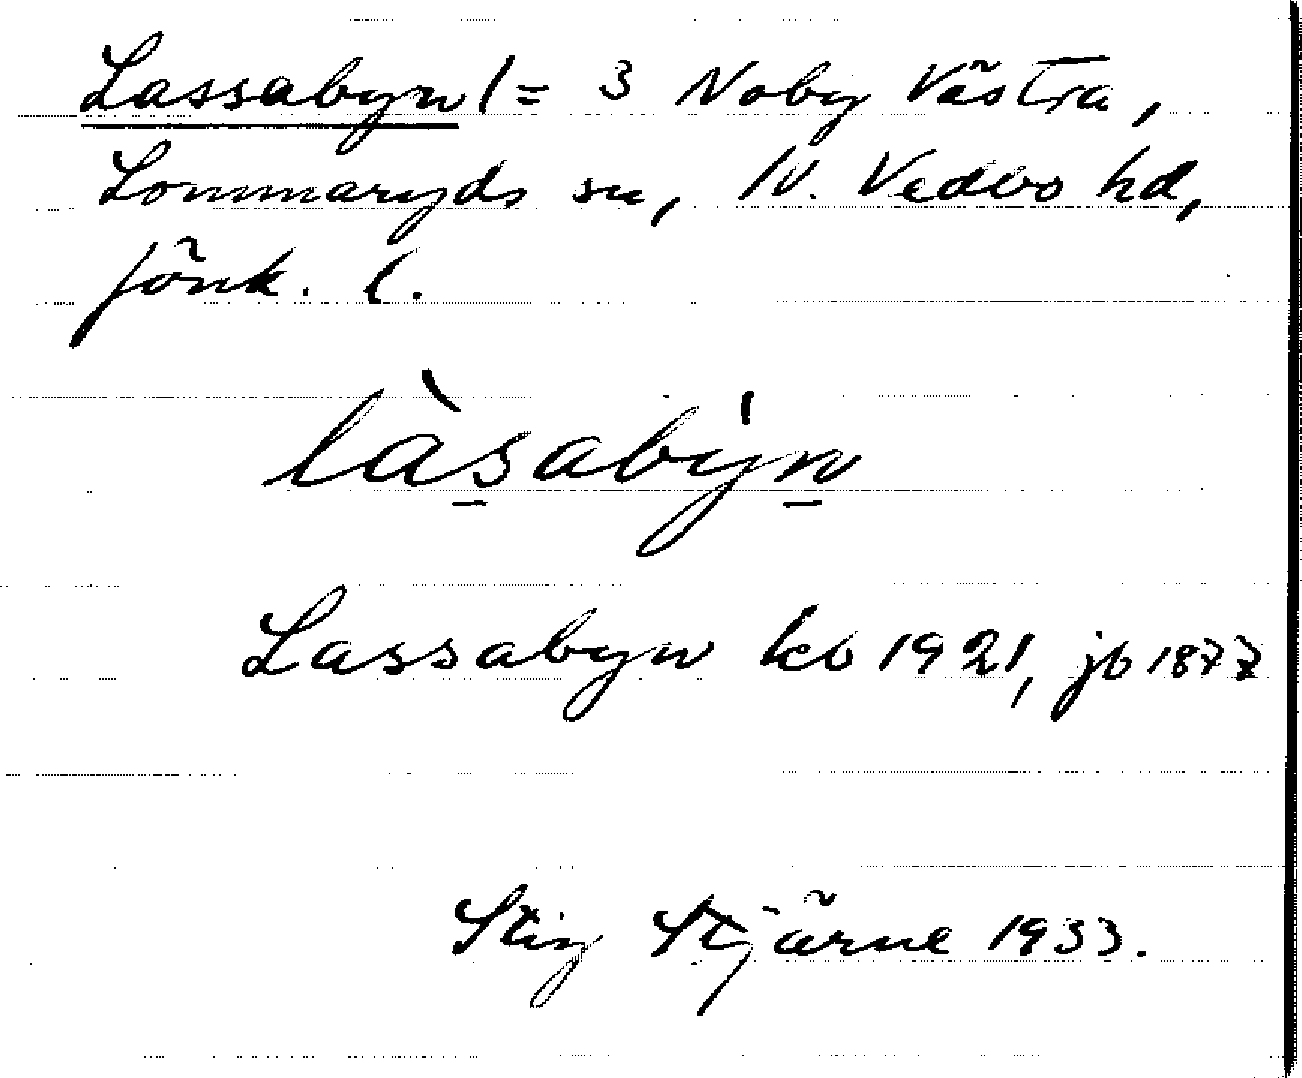 Lassabyn /= 3 Noby Västra,
Lommaryds sn, N. Vedbo hd,
Jönk. l.
làs̱abẏṉ
Lassabyn kb 1921, jb 1877
Stig Stjärne 1933.